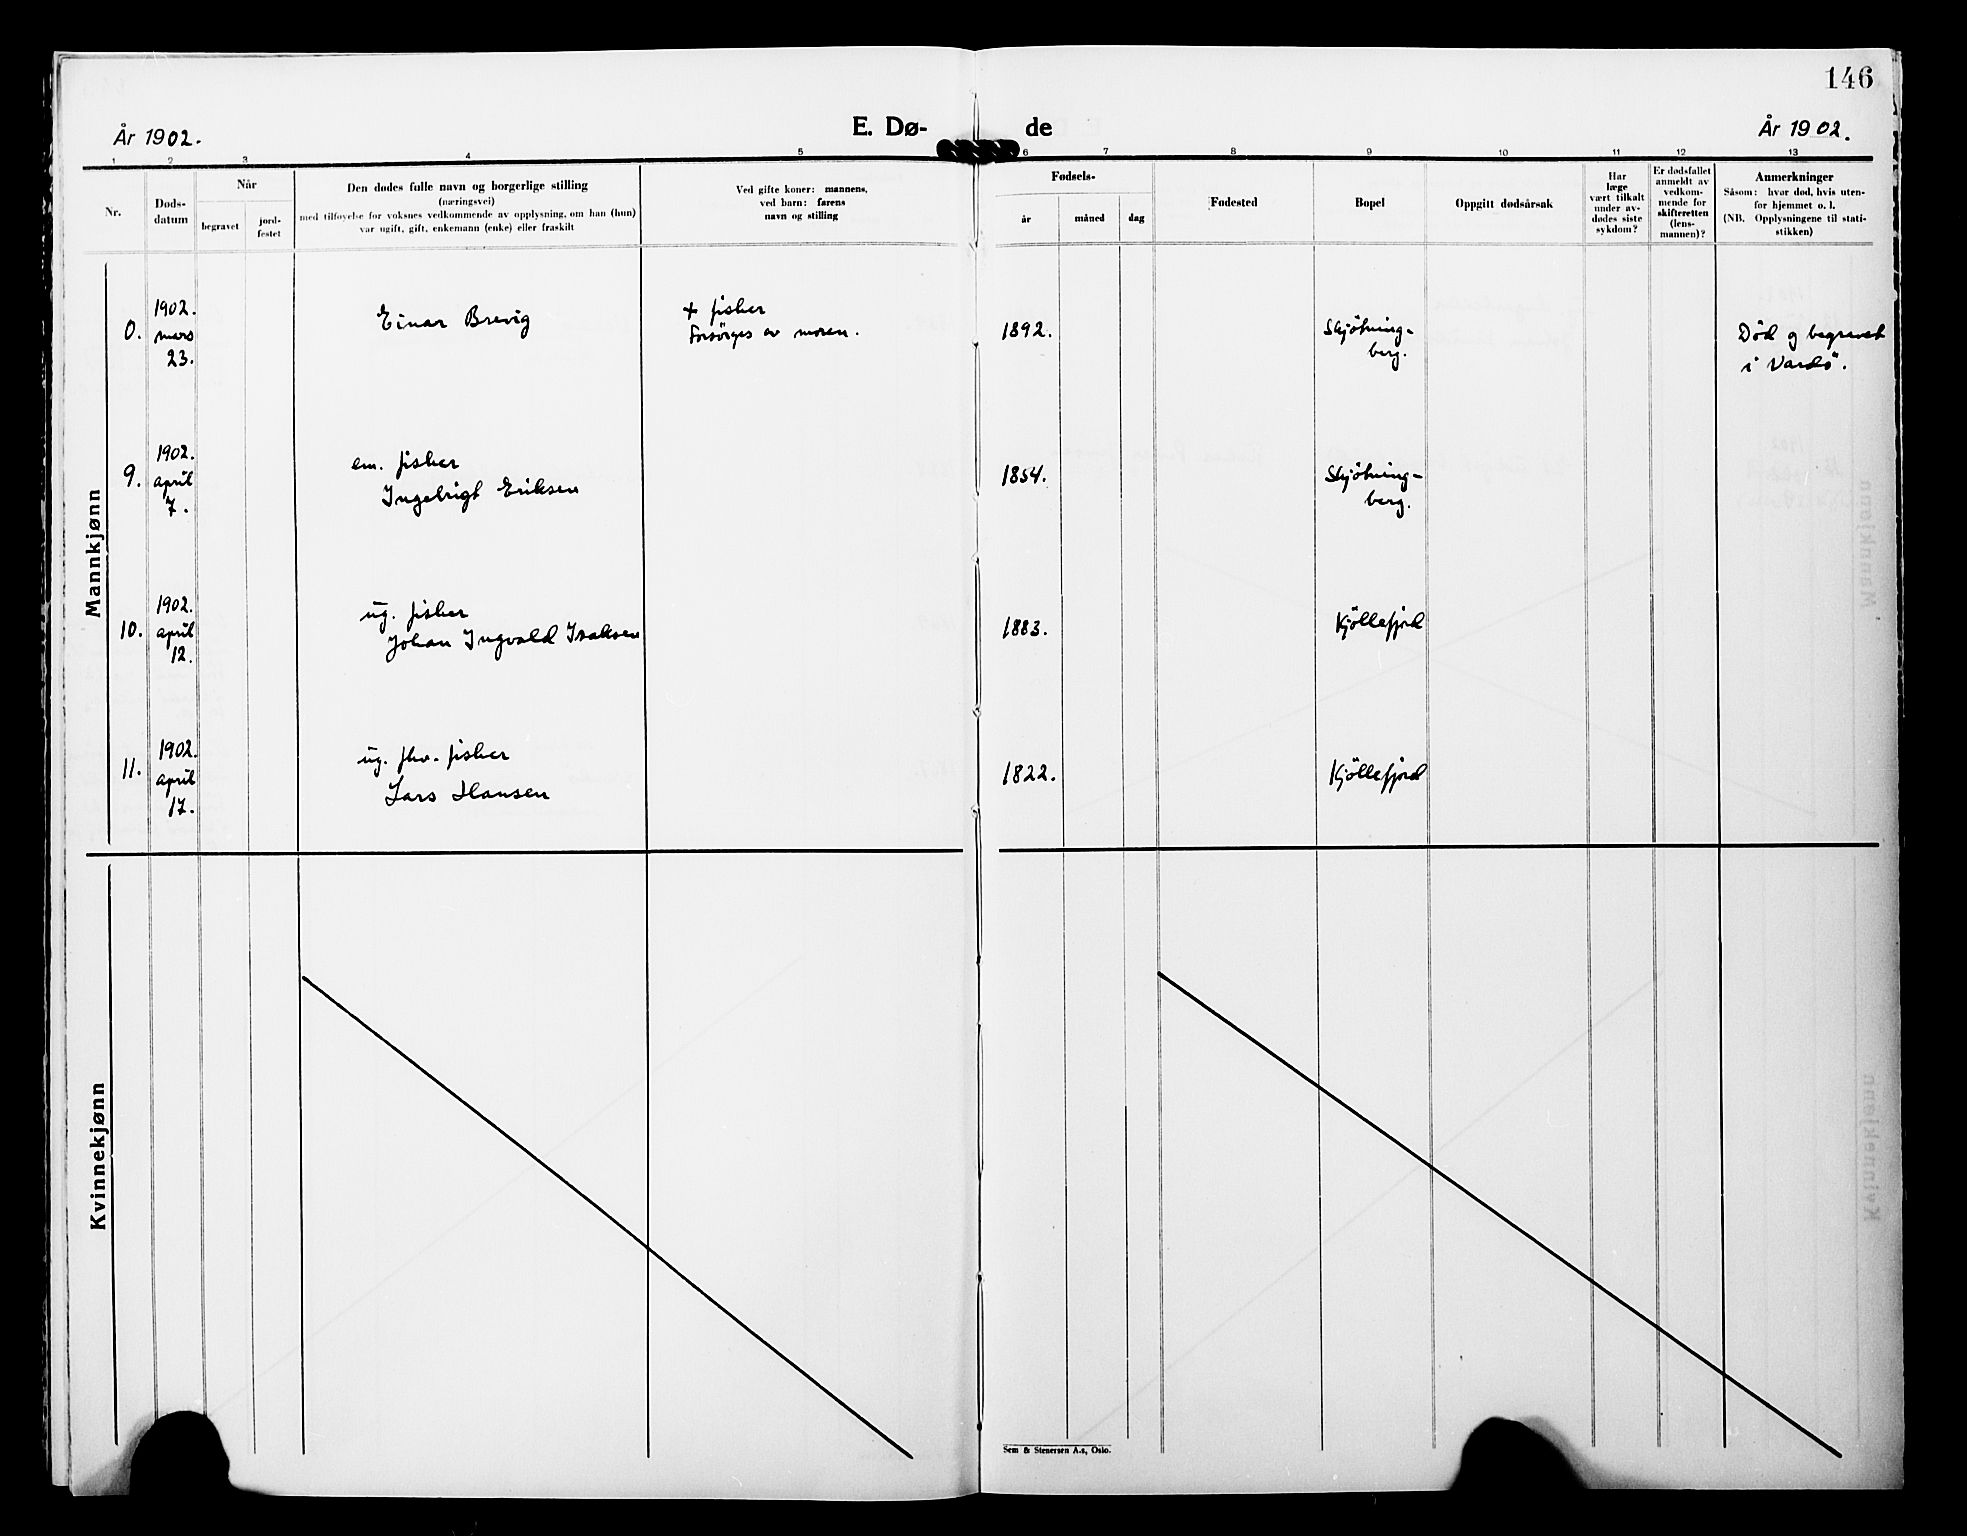 146
År 1902.
E. Dø-
de
År 1902.
1 2 3 4 5 6 7 8 9 10 11 12 13
Nr.
Døds-
datum
Når
begravet
jord-
festet
Den dødes fulle navn og borgerlige stilling
(næringsvei)
med tilføyelse for voksnes vedkommende av opplysning, om han (hun)
var ugift, gift, enkemann (enke) eller fraskilt
Ved gifte koner: mannens,
ved barn: farens
navn og stilling
Fødsels-
år
måned
dag
Fødested
Bopel
Oppgitt dødsårsak
Har
læge
vært tilkalt
under av-
dødes siste
sykdom?
Er dødsfallet
anmeldt av
vedkom-
mende for
skifteretten
(lens-
mannen)?
Anmerkninger
Såsom: hvor død, hvis uten-
for hjemmet o. l.
(NB. Opplysningene til stati-
stikken)
Mannkjønn
0.
1902.
mars
23.
Einar Brevig
+ fisker
Forsörges av moren.
1892.
Skjötning-
berg.
Död og begravet
i Vardö.
9.
1902.
april
7.
em. fisker
Ingebrigt Eriksen
1854.
Skjötning-
berg.
10.
1902.
april
12.
ug. fisker
Johan Ingvald Isaksen
1883.
Kjöllefjord
11.
1902.
april
17.
ug. fhv. fisker
Lars Hansen
1822.
Kjöllefjord
Kvinnekjønn
Sem & Stenersen A.s, Oslo.